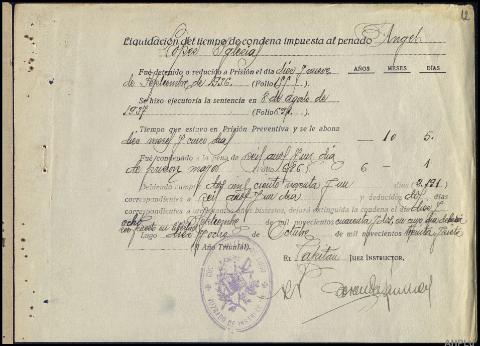 12
Liquidación del tiempo de condena impuesta al penado Angel
López Iglesias
Fué detenido o reducido a Prisión el día diez y nueve
de Septiembre de 1936. (Folio
AÑOS MESES DÍAS
Se hizo ejecutoria la sentencia en 8 de agosto de
1937 (Folio
Tiempo que estuvo en Prisión Preventiva y se le abona
diez meses y cinco días — 10 5.
Fué condenado a la pena de seis años y un día
de prisión mayor 6 — 1
Debiendo cumplir dos mil ciento noventa y un días 2.191
correspondientes a seis años y un día y deducidos días
correspondientes a deberá extinguida la condena el día diez y
ocho de Septiembre de mil novecientos cuarenta y dos, en cuyo día deberá
ser puesto en libertad
Lugo diez y ocho de Octubre de mil novecientos treinta y siete
(I Año Triunfal)
El Capitán Juez Instructor,
JUZGADO DE INSTRUC